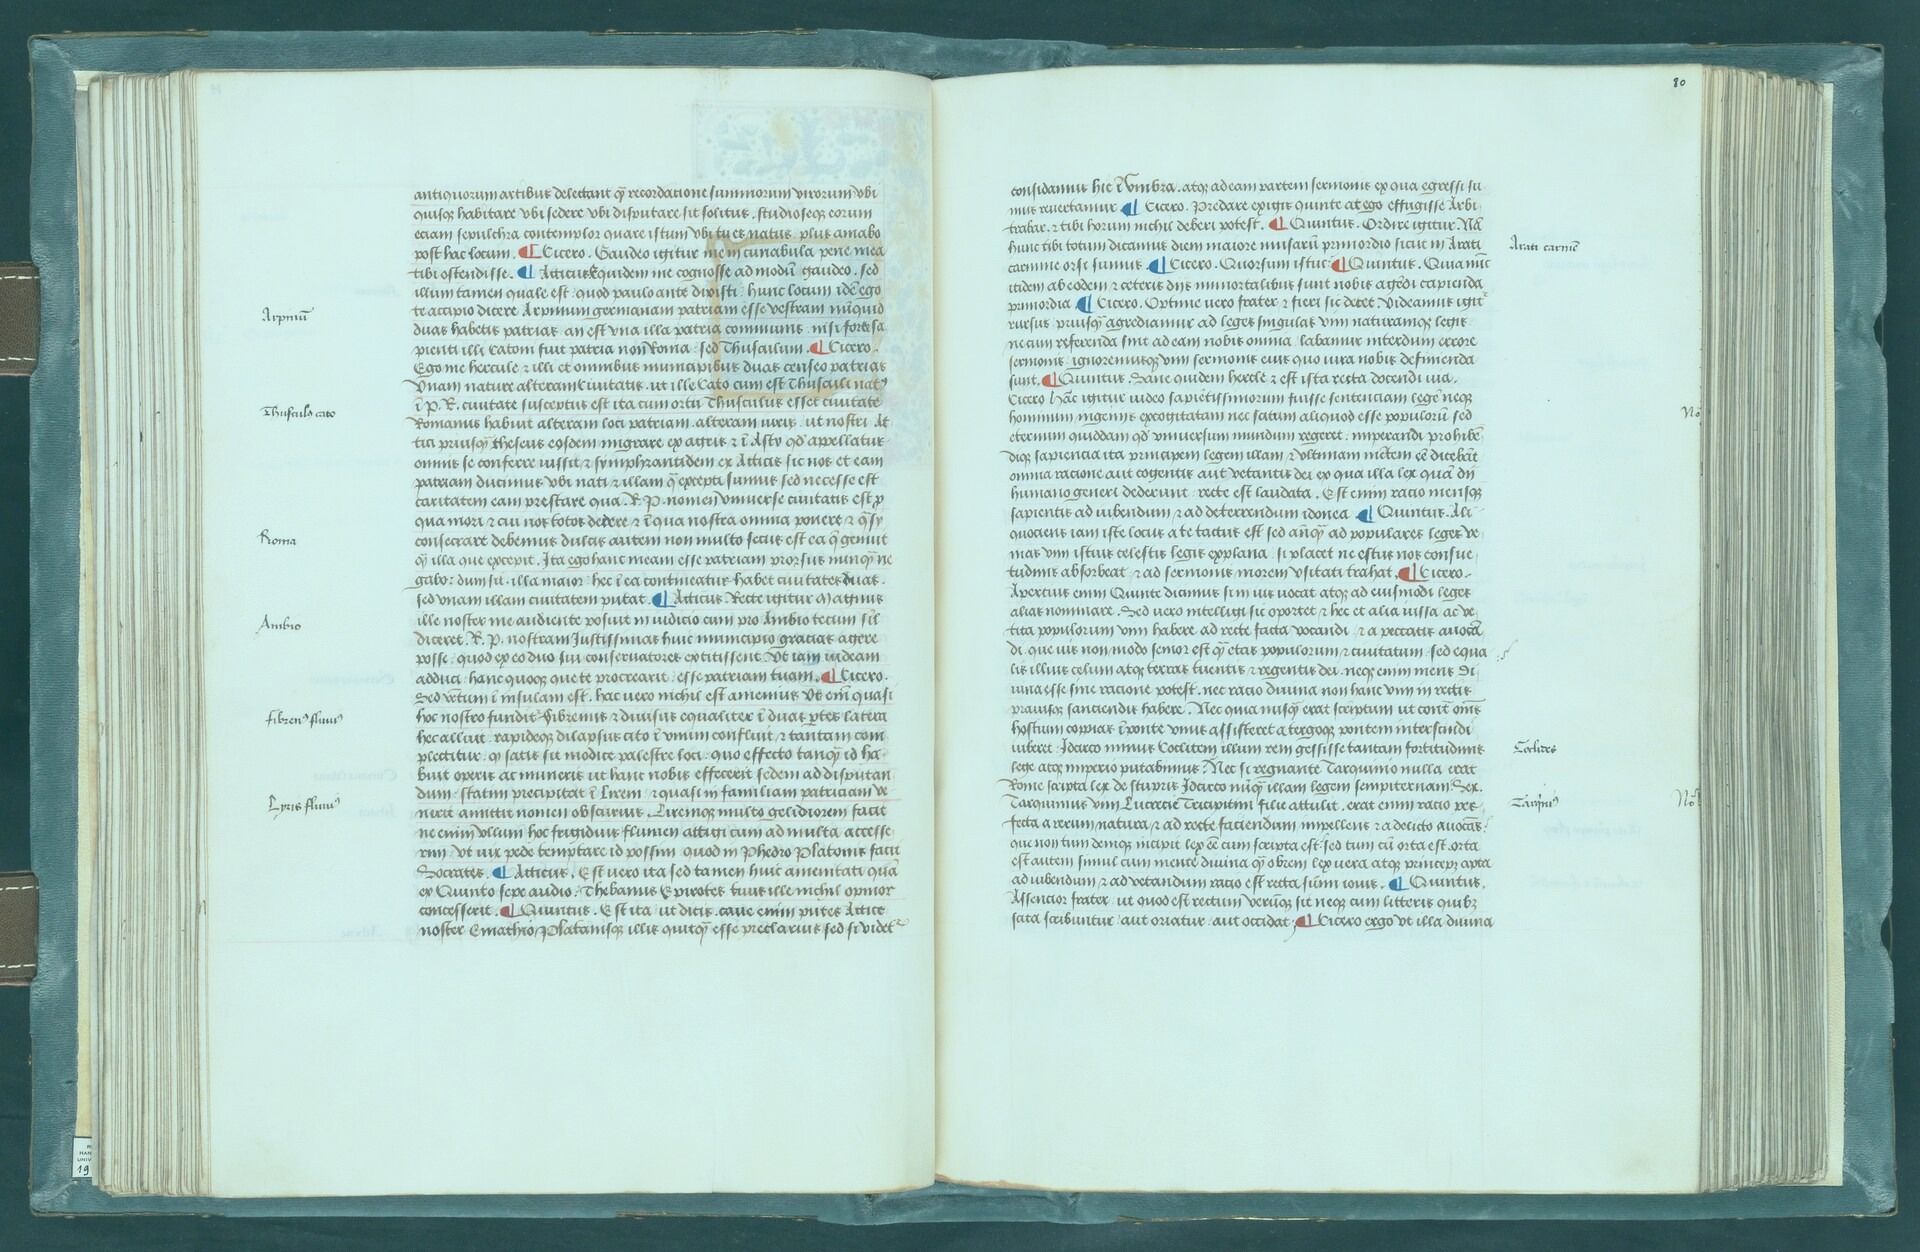 antiquorum artibus delectant q̄ recordacione summorum virorum vbi
quisq̄ habitare vbi sedere vbi disputare sit solitus . studioseq̄ eorum
eciam sepulchra contemplor quare istum vbi tu es natus plus amabo
post hac locum . ¶ Cicero . Gaudeo igitur me in cunabula pene mea
tibi ostendisse . ¶ Atticus Equidem me cognosse ad modū gaudeo . sed
illum tamen quale est quod paulo ante dixisti hunc locum idē ego
te accipio dicere Arpinum germanam patriam esse vestram nūquid
Arpinū
duas habetis patrias an est vna illa patria communis nisi forte sa
pienti illi Catoni fuit patria non Roma sed Thusculum . ¶ Cicero .
Ego me hercule ⁊ illi et omnibus municipibus duas censeo patrias
Vnam nature alteram Ciuitatis . ut ille Cato cum est Thusculi natꝰ
ī P. R. ciuitate susceptus est ita cum ortu Thusculus esset ciuitate
Thusculꝰ cato
Romanus habuit alteram loci patriam . alteram iuris . ut nostri At
tici priusq̄ theseus eosdem migrare ex agris ⁊ ī Asty qđ appellatur
omnis se conferre iussit ⁊ symphrantidem ex Atticis sic nos et eam
patriam ducimus vbi nati ⁊ illam q̄ excepti sumus sed necesse est
caritatem eam prestare qua . R. P. nomen vniuerse ciuitatis est p̱
qua mori ⁊ cui nos totos dedere ⁊ ī qua nostra omnia ponere ⁊ q̄sy
consecrare debemus dulcis autem non multo secus est ea q̄ genuit
Roma
q̄ illa que excepit . Ita ego hanc meam esse patriam prorsus nunq̄ ne
gabo dum sit . illa maior hec ī ea contineatur habet ciuitates duas .
sed vnam illam ciuitatem putat . ¶ Atticus . Recte igitur Magnus
ille noster me audiente posuit in iudicio cum pro Ambio tecum sił
Ambio
diceret . R. P. nostram Justissimas huic municipio gracias agere
posse . quod ex eo duo sui conseruatores extitissent . Vt iam uideam
adduci . hanc quoq̄ que te procrearit esse patriam tuam . ¶ Cicero .
Sed ventum ī insulam est . hac vero nichil est amenius Vt em̄ quasi
hoc nostro fundit fibrenus ⁊ diuisus equaliter ī duas ꝑtes latera
fibrenꝰ fluuiꝰ
hec alluit . rapideq̄ dilapsus cito ī vnum confluit ⁊ tantam com
plectitur q̨ satis sit modice palestre loci . quo effecto tanq̄ id ha
buit operis ac muneris ut hanc nobis effecerit sedem ad disputan
dum . statim precipitat ī Lirem ⁊ quasi in familiam patriciam ve
Lyris fluuiꝰ
nerit amittit nomen obscurius . Liremq̄ multo gelidiorem facit
ne enim vllum hoc frigidius flumen attigi cum ad multa accesse
rim . Vt uix pede temptare id possim quod in Phedro Platonis facit
Socrates . ¶ Atticus . Est vero ita sed tamen huic amenitati quā
ex Quinto sepe audio . Thebanus Epirotes tuus ille nichil opinor
concesserit . ¶ Quintus . Est ita ut dicis . caue enim putes Attice
noster Emathio Platanisq̄ illis quitq̄ esse preclarius sed si videt
80
considamus hic ī Vmbra . atq̄ ad eam partem sermonis ex qua egressi su
mus reuertamur ¶ Cicero . Predare exigis quinte at ego effugisse Arbi
trabar . ⁊ tibi horum nichil deberi potest . ¶ Quintus . Ordire igitur . Nā
hunc tibi totum dicamus diem maiore musarū primordio sicut in Arati
Arati carmīe
carmine orsi sumus . ¶ Cicero . Quorsum istuc . ¶ Quintus . Quia nūc
itidem ab eodem ⁊ ceteris diis immortalibus sunt nobis agēdi capienda
primordia ¶ Cicero . Optime uero frater ⁊ fieri sic decet Videamus igit
rursus . priusq̄ agrediamur ad leges singulas vim naturamq̄ legis
necum referenda sint ad eam nobis omnia . labamur interdum errore
sermonis . ignoremusq̄ vim sermonis eius quo iura nobis definienda
sunt . ¶ Quintus . Sane quidem hercle ⁊ est ista recta docendi uia .
Cicero Hāc igitur uideo sapiētissimorum fuisse sentenciam legē neq̄
hominum ingeniis excogitatam nec scitum aliquod esse populorū sed
No
eternum quiddam qđ vniuersum mundum regeret . imperandi prohibē
diq̄ sapiencia ita principem legem illam ⁊ vltimam mētem eē dicebāt
omnia racione aut cogentis aut vetantis dei ex qua illa lex quā dii
humano generi dederunt recte est laudata . Est enim racio mensq̄
sapientis ad iubendum ⁊ ad deterrendum idonea ¶ Quintus . Ali
quociens iam iste locus a te tactus est sed anteq̄ ad populares leges ve
nias vim istius celestis legis explana . si placet ne estus nos consue
tudinis absorbeat ⁊ ad sermonis morem vsitati trahat . ¶ Cicero .
Apertius enim Quinte dicimus si in ius uocat atq̄ ad eiusmodi leges
alias nominare . Sed uero intelligi sic oportet ⁊ hec et alia iussa ac ve
tita populorum vim habere ad recte facta vocandi ⁊ a peccatis auocā
di . que uis non modo senior est q̄ etas populorum ⁊ ciuitatum . sed equa
lis illius celum atq̄ terras tuentis ⁊ regentis dei . neq̄ enim mens Di
uina esse sine racione potest . nec racio diuina non hanc vim in rectis
prauisq̄ sanciendis habere . Nec quia nusq̄ erat scriptum ut contra omīs
hostium copias ī ponte vnus assisteret a tergoq̄ pontem interscindi
iuberet . Idcirco minus Coclitem illum rem gessisse tantam fortitudinis
Coclites
lege atq̄ imperio putabimus . Nec si regnante Tarquinio nulla erat
Rome scripta lex de stupris Idcirco nōq̄ illam legem sempiternam . Sex .
Tarquinius vim Lucrecie Tricipitini filie attulit . erat enim racio per
Tarq̄niꝰ
No
fecta a rerum natura ⁊ ad recte faciendum impellens ⁊ a delicto auocās .
que non tum deniq̄ incipit lex eē cum scripta est sed tum cū orta est . orta
est autem simul cum mente diuina q̄ obrem lex vera atq̄ princeps apta
ad iubendum ⁊ ad vetandum racio est recta sūmi iouis . ¶ Quintus .
Assencior frater . ut quod est rectum verūq̄ sit neq̄ cum litteris quibꝫ
scita scribuntur aut oriatur aut occidat . ¶ Cicero ergo vt illa diuina